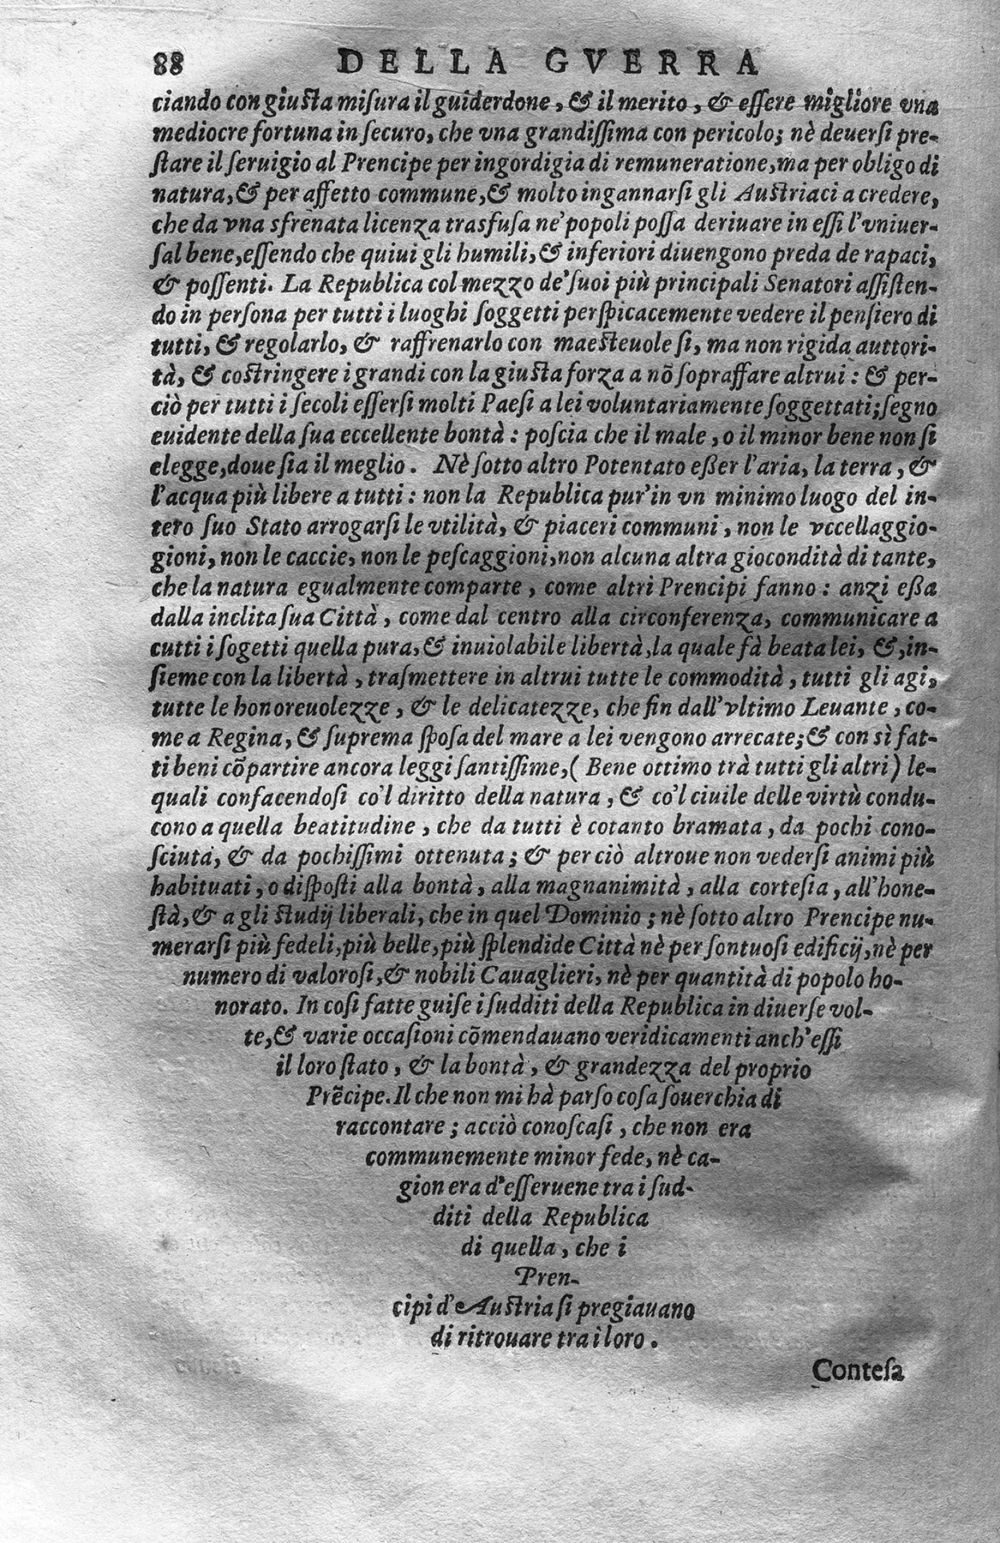 88 DELLA GVERRA
ciando con giusta misura il guiderdone, & il merito, & eſſere migliore vna
mediocre fortuna in ſecuro, che vna grandiſſima con pericolo; nè deuerſi pre-
ſtare il ſeruigio al Prencipe per ingordigia di remuneratione, ma per obligo di
natura, & per affetto commune, & molto ingannarſi gli Auſtriaci a credere,
che da vna sfrenata licenza trasfuſa ne' popoli poſſa deriuare in eſſi l'vniuer-
ſal bene, eſſendo che quiui gli humili, & inferiori diuengono preda de rapaci,
& poſſenti. La Republica col mezzo de' ſuoi più principali Senatori aſſiſten-
do in perſona per tutti i luoghi ſoggetti perſpicacemente vedere il penſiero di
tutti, & regolarlo, & raffrenarlo con maeſteuole ſi, ma non rigida auttori-
tà, & coſtringere i grandi con la giuſta forza a nõ ſopraffare altrui: & per-
ciò per tutti i ſecoli eſſerſi molti Paeſi a lei voluntariamente ſoggettati; ſegno
euidente della ſua eccellente bontà: poſcia che il male, o il minor bene non ſi
elegge, doue ſia il meglio. Nè ſotto altro Potentato eßer l'aria, la terra, &
l'acqua più libere a tutti: non la Republica pur'in vn minimo luogo del in-
tero ſuo Stato arrogarſi le vtilità, & piaceri communi, non le vccellaggio-
gioni, non le caccie, non le peſcaggioni, non alcuna altra giocondità di tante,
che la natura egualmente comparte, come altri Prencipi fanno: anzi eßa
dalla inclita ſua Città, come dal centro alla circonferenza, communicare a
cutti i ſogetti quella pura, & inuiolabile libertà, la quale fà beata lei, &, in-
ſieme con la libertà, traſmettere in altrui tutte le commodità, tutti gli agi,
tutte le honoreuolezze, & le delicatezze, che fin dall'vltimo Leuante, co-
me a Regina, & ſuprema ſpoſa del mare a lei vengono arrecate; & con sì fat-
ti beni cõpartire ancora leggi ſantiſſime, (Bene ottimo trà tutti gli altri) le-
quali confacendoſi co'l diritto della natura, & co'l ciuile delle virtù condu-
cono a quella beatitudine, che da tutti è cotanto bramata, da pochi cono-
ſciuta, & da pochiſſimi ottenuta; & per ciò altroue non vederſi animi più
habituati, o diſpoſti alla bontà, alla magnanimità, alla corteſia, all'hone-
ſtà, & a gli ſtudij liberali, che in quel Dominio; nè ſotto altro Prencipe nu-
merarſi più fedeli, più belle, più ſplendide Città nè per ſontuoſi edificij, nè per
numero di valoroſi, & nobili Cauaglieri, nè per quantità di popolo ho-
norato. In coſi fatte guiſe i ſudditi della Republica in diuerſe vol-
te, & varie occaſioni cõmendauano veridicamenti anch'eſſi
il loro ſtato, & la bontà, & grandezza del proprio
Prẽcipe. Il che non mi hà parſo coſa ſouerchia di
raccontare; acciò conoſcaſi, che non era
communemente minor fede, nè ca-
gion era d'eſſeruene tra i ſud-
diti della Republica
di quella, che i
Pren-
cipi d'Auſtria ſi pregiauano
di ritrouare tra i loro.
Conteſa